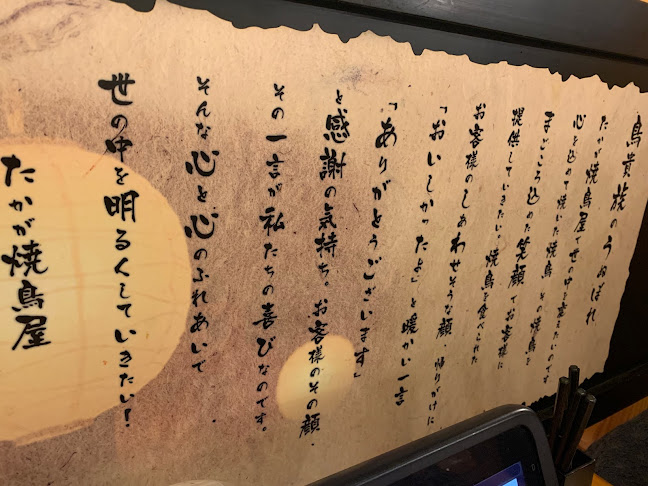 鳥貴族のうぬぼれ
たかが焼鳥屋で世の中を変えたいのです
心を込めて焼いた焼鳥、その焼鳥を
まごころ込めた笑顔でお客様に
提供していきたい。焼鳥を食べられた
お客様のしあわせそうな顔、帰りがけに
「おいしかったよ」と暖かい一言
「ありがとうございます」
と感謝の気持ち。お客様のその顔、
その一言が私たちの喜びなのです。
そんな心と心のふれあいで
世の中を明るくしていきたい！
たかが焼鳥屋